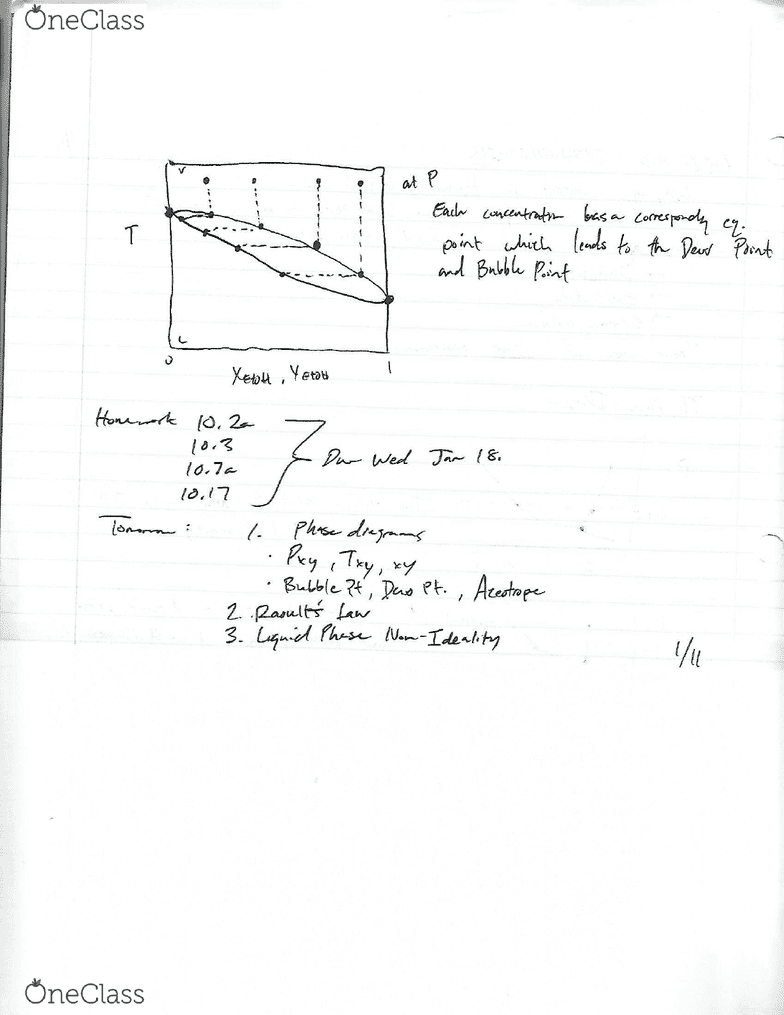 OneClass
V
at P
Each concentration has a correspondg eq.
point which leads to th Dew Point
and Bubble Point
T
L
0
1
XEtOH, YEtOH
Homework 10.2a
10.3
10.7a
10.17
Due Wed Jan 18.
Tomorrow: 1. Phase diagrams
· Pxy, Txy, xy
· Bubble Pt, Dew Pt., Azeotrope
2. Raoult's Law
3. Liquid Phase Non-Ideality
1/11
OneClass